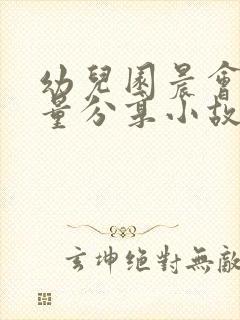 幼兒園晨會
量分享小故
玄坤絕對無敵